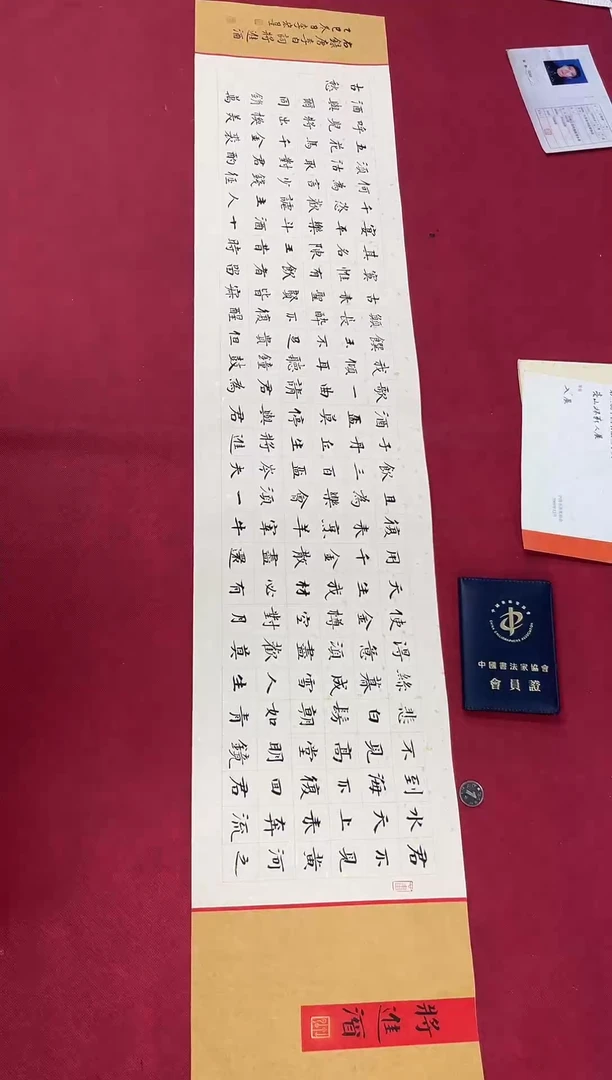 將進酒
君不見黃河之
水天上來奔流
到海不復回君
不見高堂明鏡
悲白髮朝如青
絲暮成雪人生
得意須盡歡莫
使金樽空對月
天生我材必有
用千金散盡還
復來烹羊宰牛
且為樂會須一
飲三百盃岑夫
子丹丘生將進
酒盃莫停與君
歌一曲請君為
我傾耳聽鐘鼓
饌玉不足貴但
願長醉不復醒
古來聖賢皆寂
寞惟有飲者留
其名陳王昔時
宴平樂斗酒十
千恣歡謔主人
何為言少錢徑
須沽取對君酌
五花馬千金裘
呼兒將出換美
酒與爾同銷萬
古愁
右錄唐李白詞將進酒
乙巳冬日李宗
中國書法家協會
會員證
入展